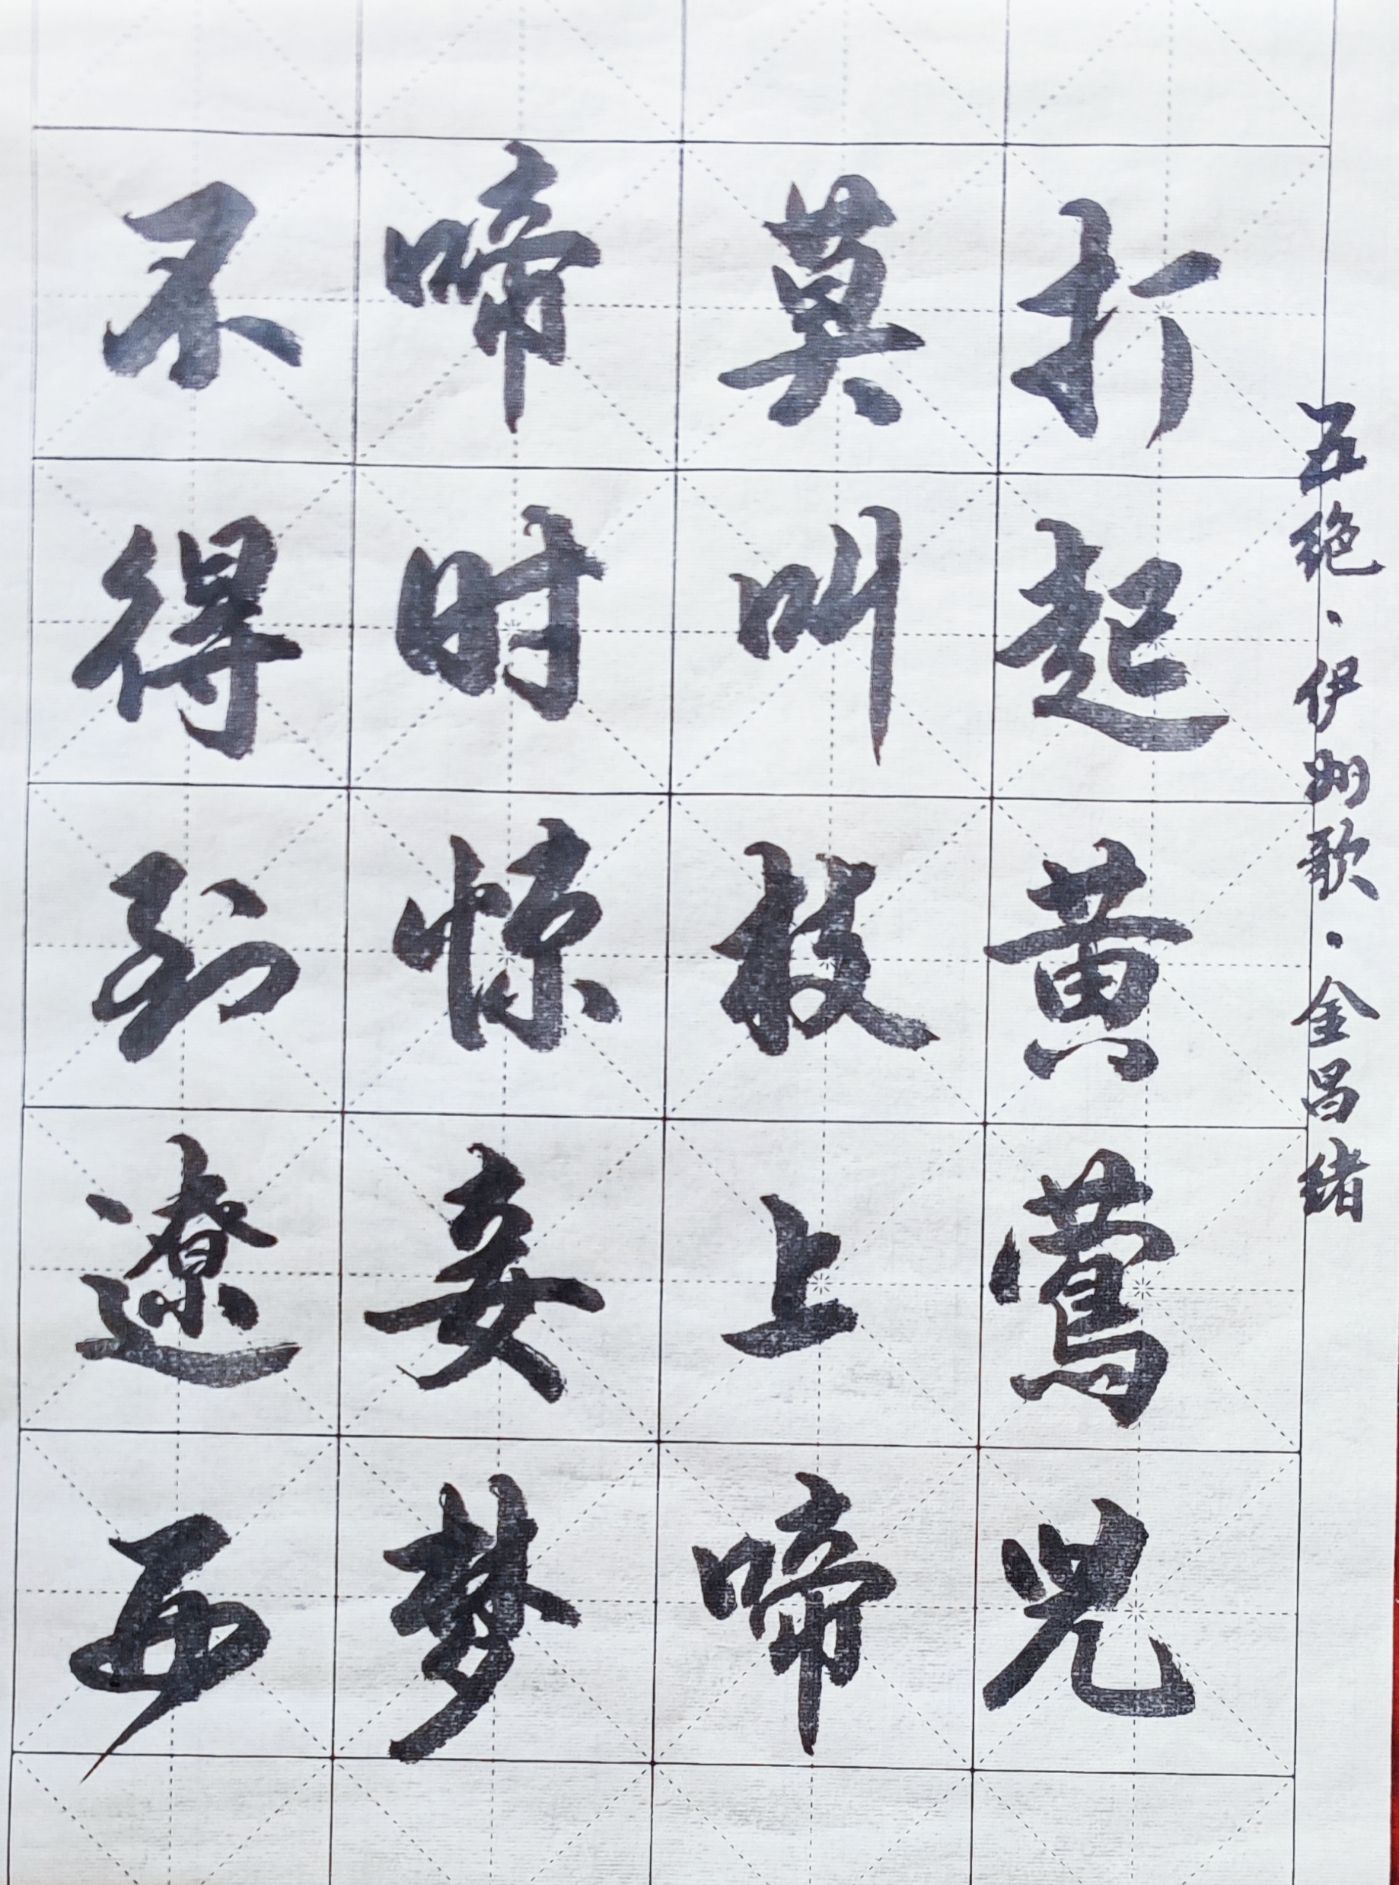 五绝·伊州歌·金昌绪
打起黄莺兒
莫叫枝上啼
啼时惊妾梦
不得到遼西